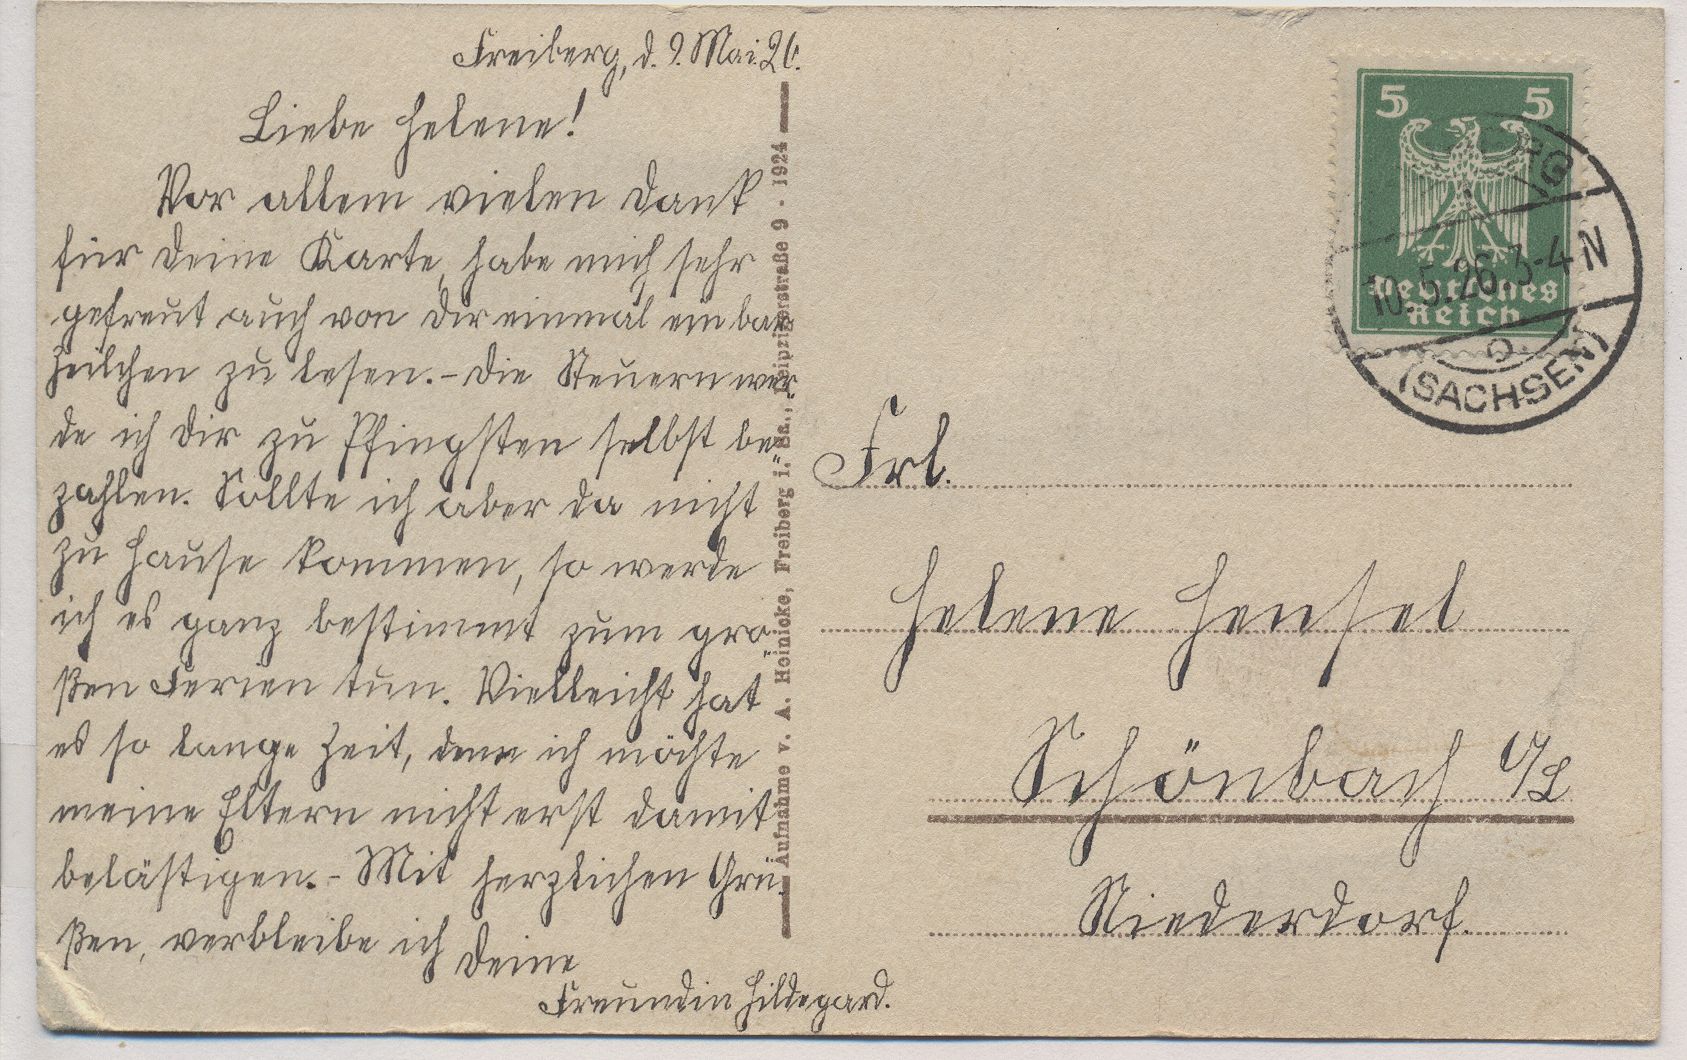 Freiberg, d. 9. Mai. 26.
Liebe Helene!
Vor allem vielen Dank
für Deine Karte, habe mich sehr
gefreut auch von Dir einmal ein paar
Zeilchen zu lesen. - Die Steuern wer-
de ich Dir zu Pfingsten selbst be-
zahlen. Sollte ich aber da nicht
zu Hause kommen, so werde
ich es ganz bestimmt zum gro-
ßen Ferien tun. Vielleicht hat
es so lange Zeit, denn ich möchte
meine Eltern nicht erst damit
belästigen. - Mit herzlichen Grü-
ßen, verbleibe ich Deine
Freundin Hildegard.
Aufnahme v. A. Heinicke, Freiberg i. Sa., Leipzigerstraße 9 · 1924
5 5
Deutsches
Reich
10.5.26.3-4 N
(SACHSEN)
Frl.
Helene Hensel
Schönbach o/L
Niederdorf.